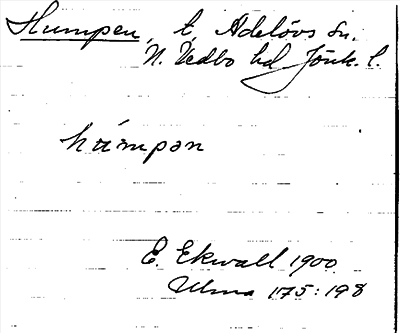 Humpen, t, Adelövs sn.
N. Vedbo hd Jönk. l.
húmpən
E. Ekwall 1900
Ulma 175:198